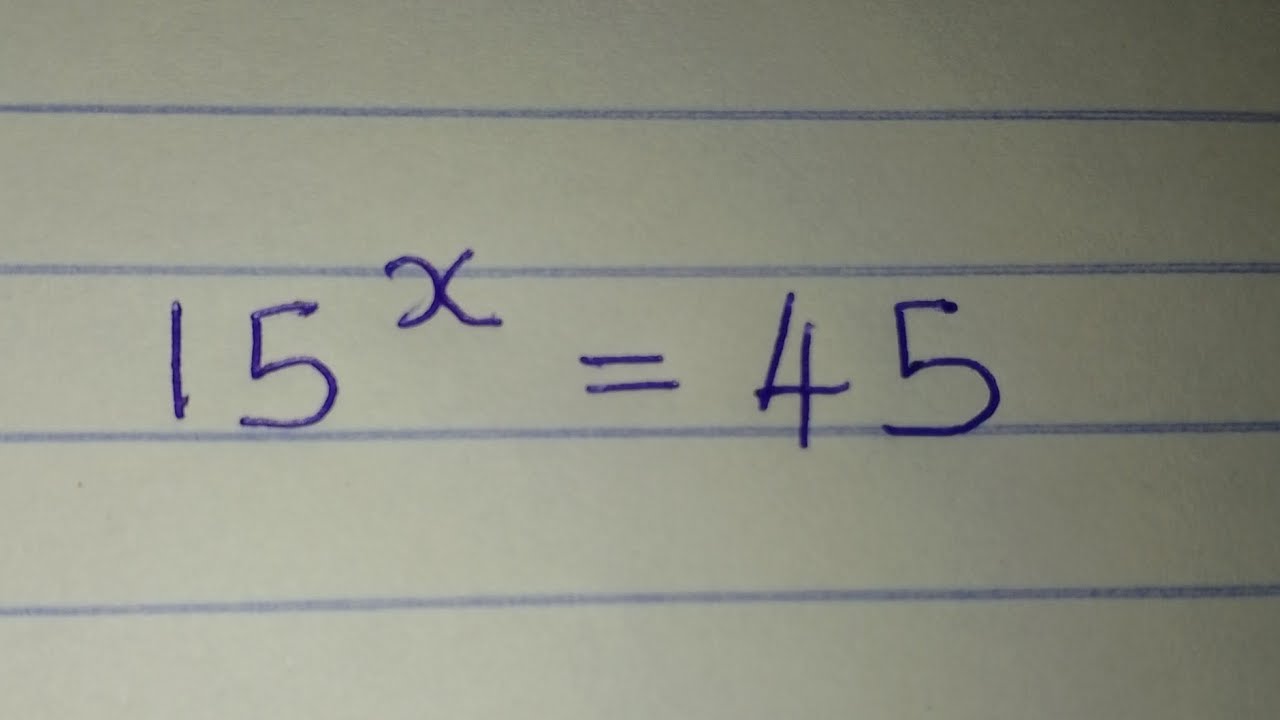 15^x = 45